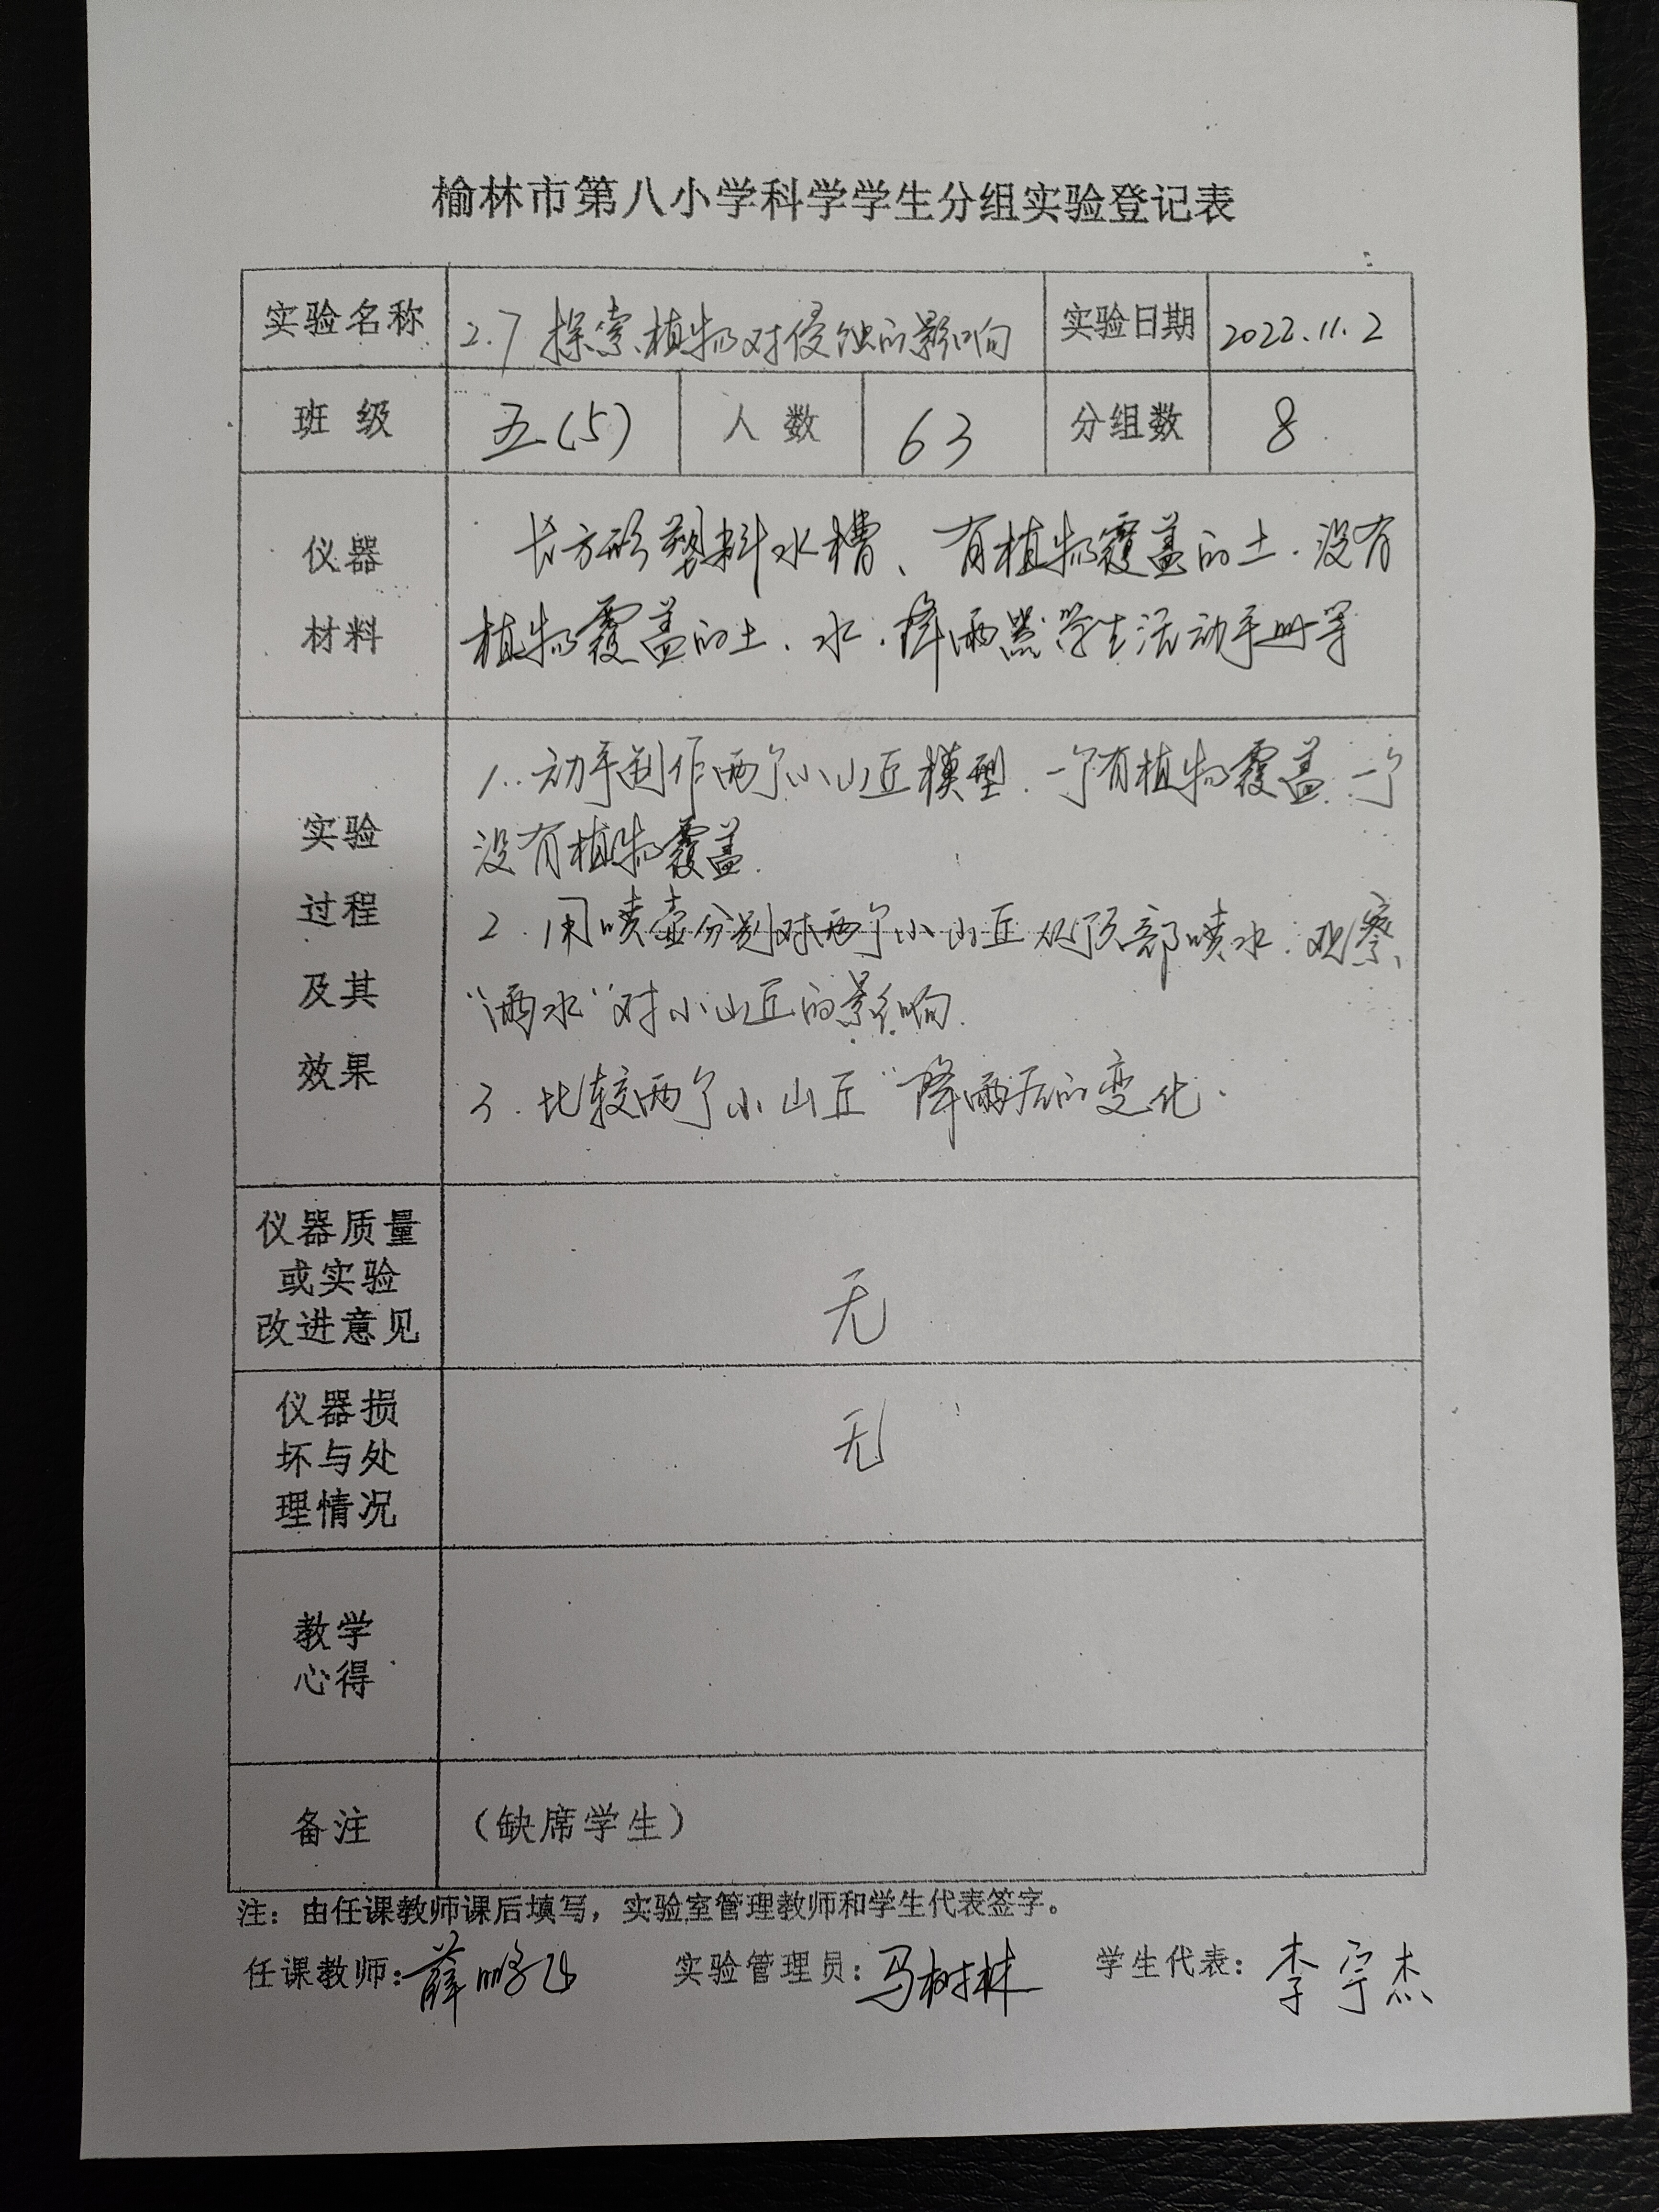 榆林市第八小学科学学生分组实验登记表
实验名称 2.7 探索植物对侵蚀的影响 实验日期 2022.11.2
班级 五(5) 人数 63 分组数 8
仪器
材料
长方形塑料水槽、有植物覆盖的土、没有
植物覆盖的土、水、降雨器、学生活动手册等
实验
过程
及其
效果
1. 动手制作两个小山丘模型、一个有植物覆盖、一个
没有植物覆盖.
2. 用喷壶分别对两个小山丘从顶部喷水、观察
“雨水”对小山丘的影响.
3. 比较两个小山丘“降雨后的变化.
仪器质量
或实验
改进意见
无
仪器损
坏与处
理情况
无
教学
心得
备注 (缺席学生)
注：由任课教师课后填写，实验室管理教师和学生代表签字。
任课教师：薛鹏飞 实验管理员：马树林 学生代表：李宇杰